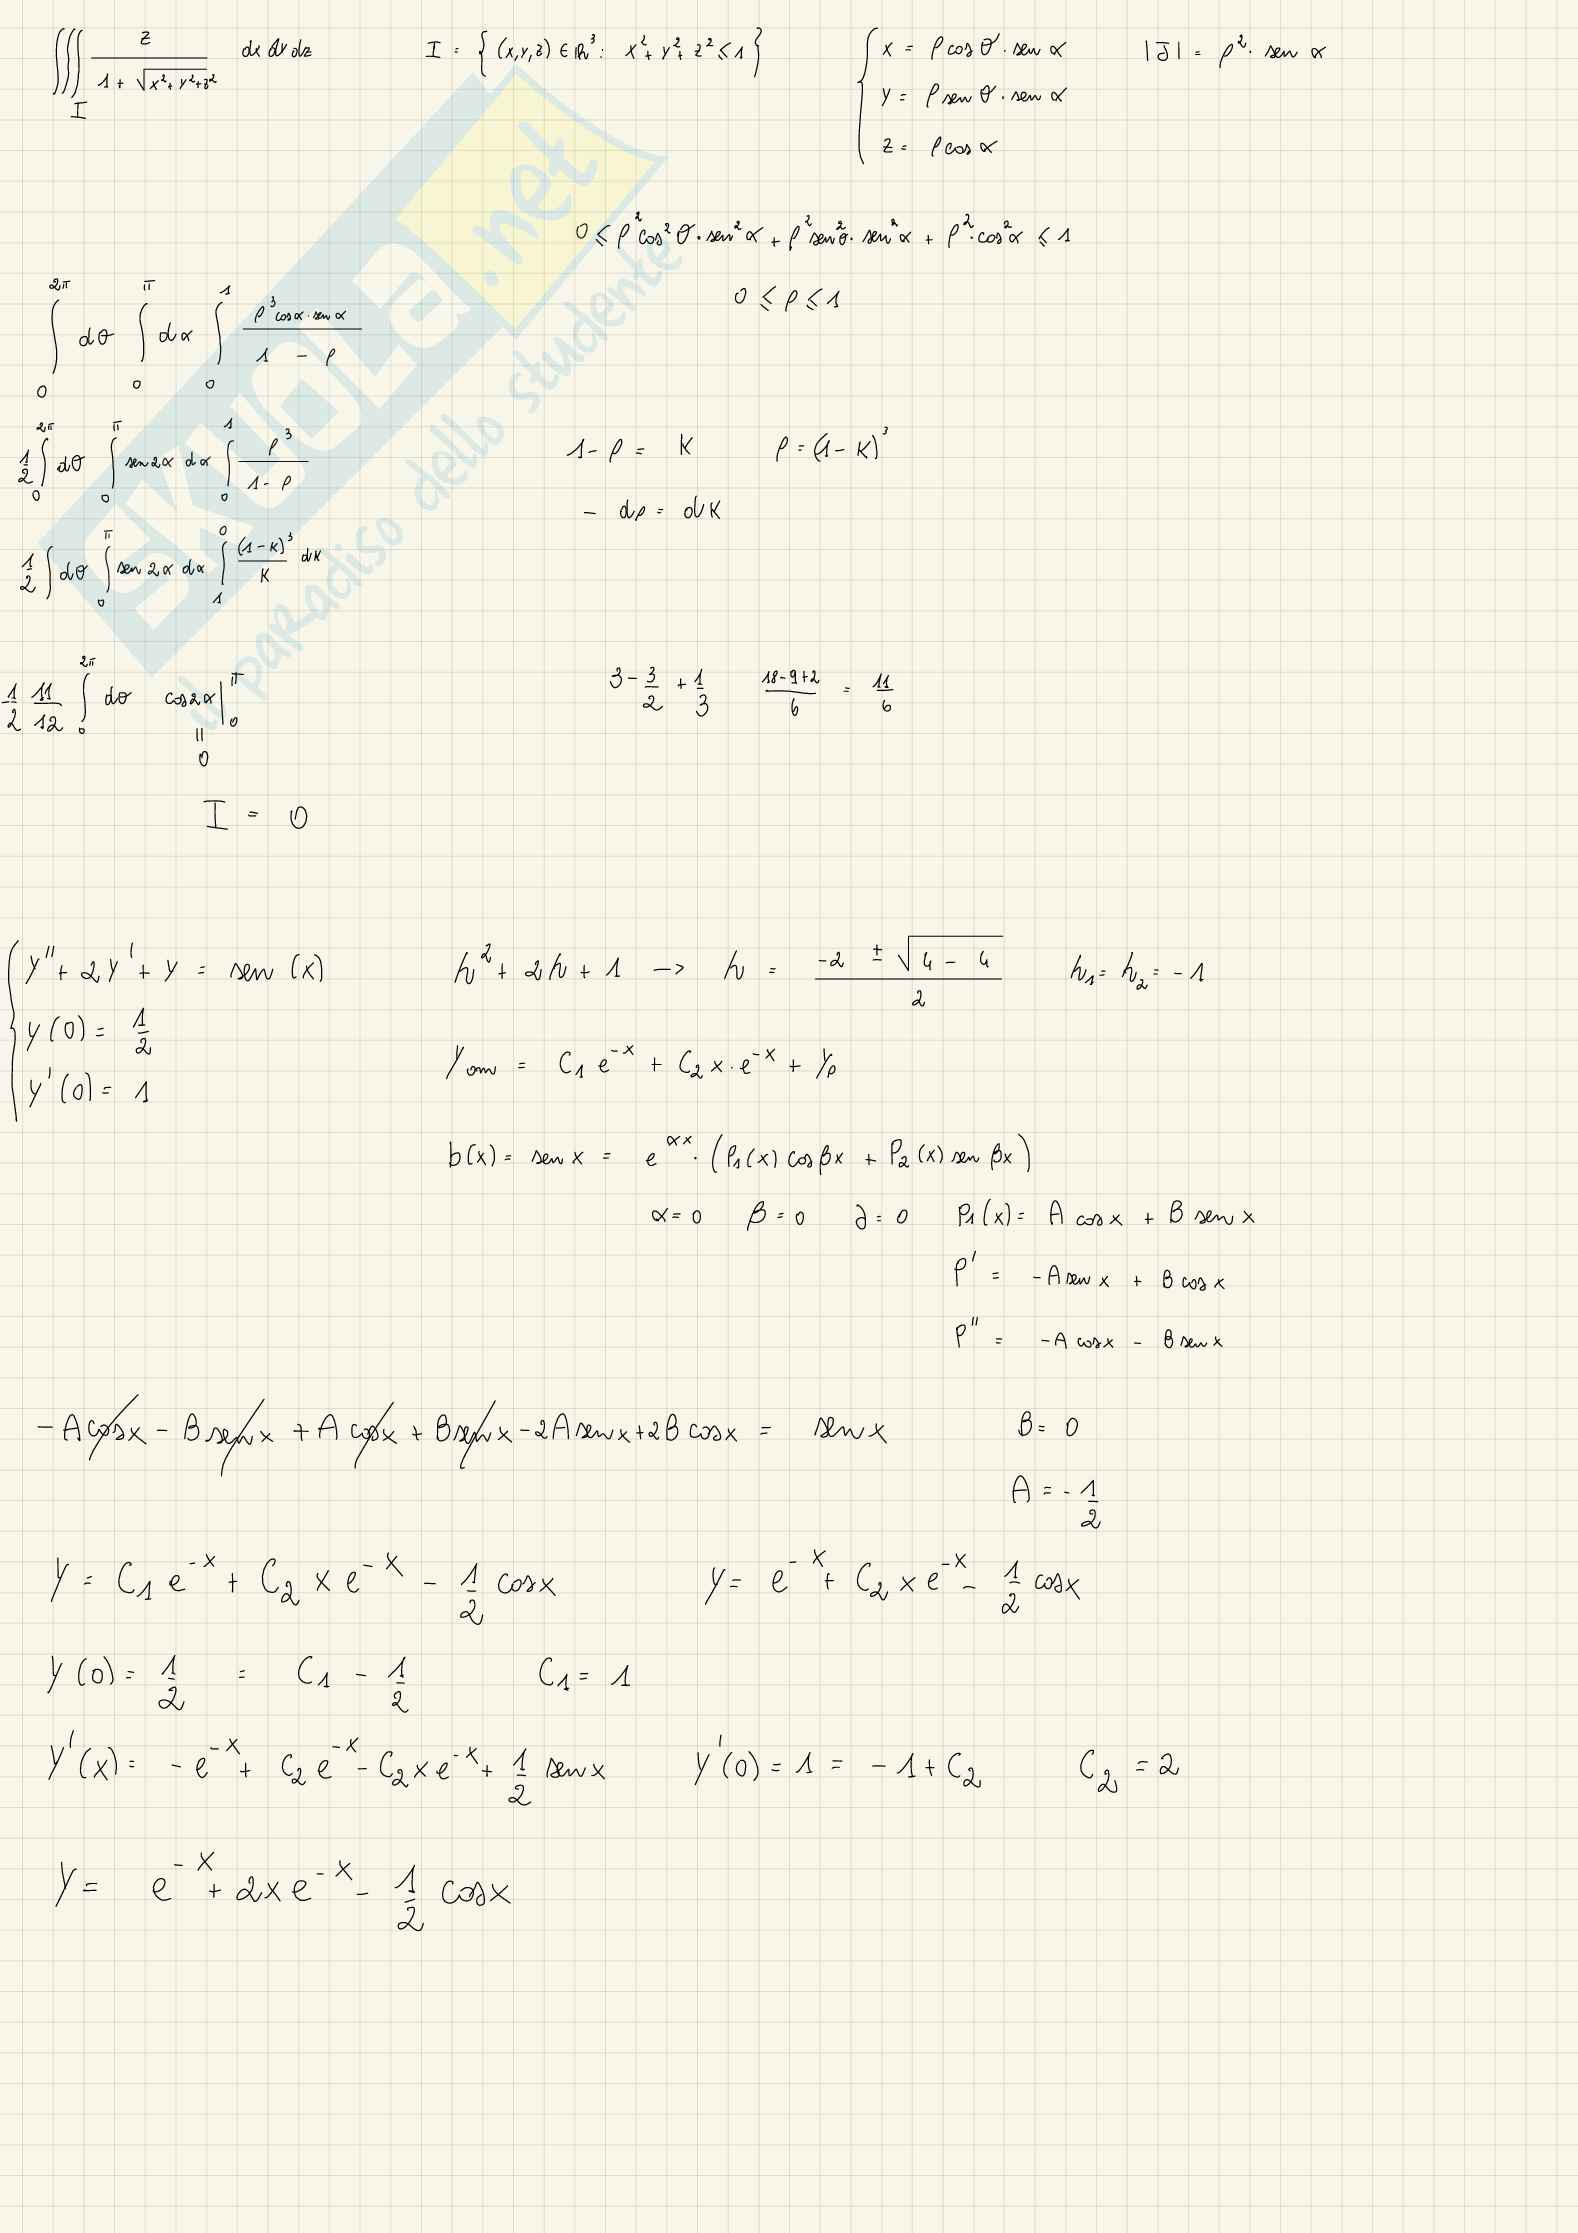 ∭_I z / (1 + √(x²+y²+z²)) dx dy dz    I = { (x,y,z) ∈ ℝ³ : x²+y²+z² ≤ 1 }    { x = ρ cos θ · sen α    |J| = ρ² · sen α
y = ρ sen θ · sen α
z = ρ cos α
0 ≤ ρ² cos² θ · sen² α + ρ² sen² θ · sen² α + ρ² · cos² α ≤ 1
0 ≤ ρ ≤ 1
∫_0^{2π} dθ ∫_0^π dα ∫_0^1 (ρ³ cos α · sen α) / (1 - ρ)
1/2 ∫_0^{2π} dθ ∫_0^π sen 2α dα ∫_0^1 ρ³ / (1 - ρ)    1 - ρ = K    ρ = (1 - K)³
- dρ = dK
1/2 ∫ dθ ∫_0^π sen 2α dα ∫_1^0 (1 - K)³ / K dK
1/2 11/12 ∫_0^{2π} dθ cos 2α |_0^π    3 - 3/2 + 1/3    (18 - 9 + 2)/6 = 11/6
||
0
I = 0
{ y'' + 2y' + y = sen (x)    h² + 2h + 1 -> h = (-2 ± √(4 - 4)) / 2    h₁ = h₂ = -1
y(0) = 1/2
y'(0) = 1
y_om = C₁ e^{-x} + C₂ x · e^{-x} + y_p
b(x) = sen x = e^{αx} · (P₁(x) cos βx + P₂(x) sen βx)
α = 0    β = 0    ∂ = 0    P₁(x) = A cos x + B sen x
P' = -A sen x + B cos x
P'' = -A cos x - B sen x
-A cos x - B sen x + A cos x + B sen x - 2A sen x + 2B cos x = sen x    B = 0
A = -1/2
y = C₁ e^{-x} + C₂ x e^{-x} - 1/2 cos x    y = e^{-x} + C₂ x e^{-x} - 1/2 cos x
y(0) = 1/2 = C₁ - 1/2    C₁ = 1
y'(x) = -e^{-x} + C₂ e^{-x} - C₂ x e^{-x} + 1/2 sen x    y'(0) = 1 = -1 + C₂    C₂ = 2
y = e^{-x} + 2x e^{-x} - 1/2 cos x
SKUOLa.net
il paradiso dello studente